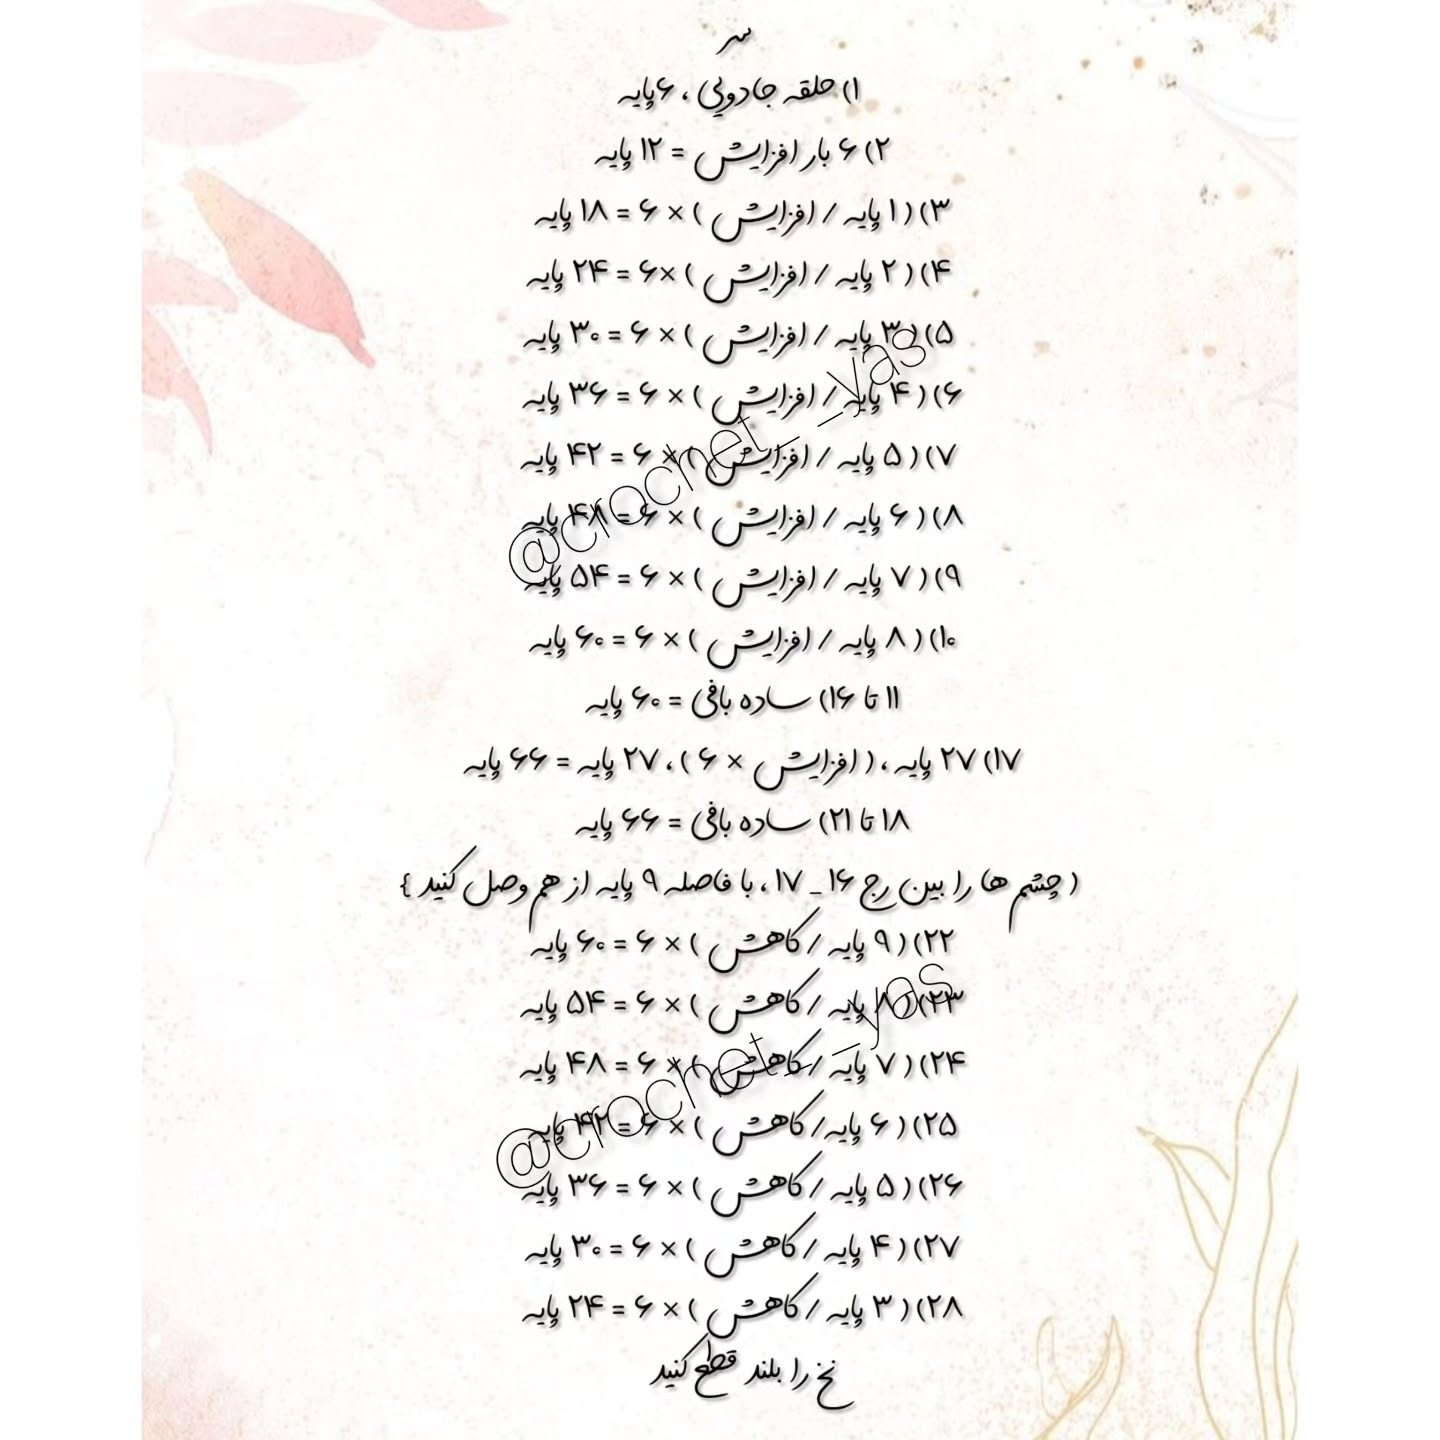 سر
۱) حلقه جادویی ، ۶ پایه
۲) ۶ بار افزایش = ۱۲ پایه
۳) ( ۱ پایه / افزایش ) × ۶ = ۱۸ پایه
۴) ( ۲ پایه / افزایش ) ×۶ = ۲۴ پایه
۵) ( ۳ پایه / افزایش ) × ۶ = ۳۰ پایه
۶) ( ۴ پایه / افزایش ) × ۶ = ۳۶ پایه
۷) ( ۵ پایه / افزایش ) × ۶ = ۴۲ پایه
۸) ( ۶ پایه / افزایش ) × ۶ = ۴۸ پایه
@crochet__yas
۹) ( ۷ پایه / افزایش ) × ۶ = ۵۴ پایه
۱۰) ( ۸ پایه / افزایش ) × ۶ = ۶۰ پایه
۱۱ تا ۱۶) ساده بافی = ۶۰ پایه
۱۷) ۲۷ پایه ، ( افزایش × ۶ ) ، ۲۷ پایه = ۶۶ پایه
۱۸ تا ۲۱) ساده بافی = ۶۶ پایه
( چشم ها را بین رج ۱۶ _ ۱۷ ، با فاصله ۹ پایه از هم وصل کنید }
۲۲) ( ۹ پایه / کاهش ) × ۶ = ۶۰ پایه
۲۳) ( ۸ پایه / کاهش ) × ۶ = ۵۴ پایه
۲۴) ( ۷ پایه / کاهش ) × ۶ = ۴۸ پایه
۲۵) ( ۶ پایه / کاهش ) × ۶ = ۴۲ پایه
@crochet__yas
۲۶) ( ۵ پایه / کاهش ) × ۶ = ۳۶ پایه
۲۷) ( ۴ پایه / کاهش ) × ۶ = ۳۰ پایه
۲۸) ( ۳ پایه / کاهش ) × ۶ = ۲۴ پایه
نخ را بلند قطع کنید